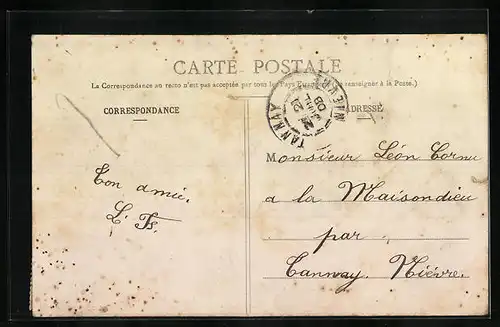 CARTE POSTALE
(La Correspondance au recto n'est pas acceptée par tous les Pays renseigner à la Poste.)
CORRESPONDANCE
ADRESSE
TANNAY
NIÈVRE
Ton ami.
L. F.
Monsieur Léon Cornu
a la Maisondieu
par
Tannay. Nièvre.